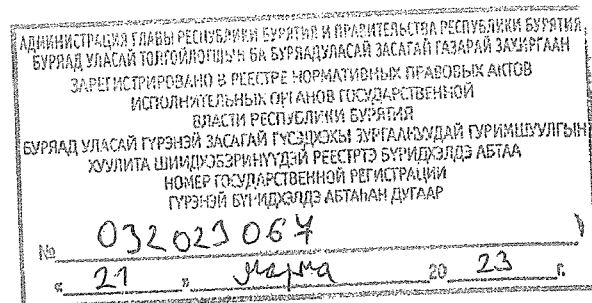 АДМИНИСТРАЦИЯ ГЛАВЫ РЕСПУБЛИКИ БУРЯТИЯ И ПРАВИТЕЛЬСТВА РЕСПУБЛИКИ БУРЯТИЯ
БУРЯАД УЛАСАЙ ТОЛГОЙЛОГШЫН БА БУРЯАД УЛАСАЙ ЗАСАГАЙ ГАЗАРАЙ ЗАХИРГААН
ЗАРЕГИСТРИРОВАНО В РЕЕСТРЕ НОРМАТИВНЫХ ПРАВОВЫХ АКТОВ
ИСПОЛНИТЕЛЬНЫХ ОРГАНОВ ГОСУДАРСТВЕННОЙ
ВЛАСТИ РЕСПУБЛИКИ БУРЯТИЯ
БУРЯАД УЛАСАЙ ГҮРЭНЭЙ ЗАСАГАЙ ГҮСЭДХЭХЫ ЗУРГААНУУДАЙ ГУРИМШУУЛГЫН
ХУУЛИТА ШИИДХЭБЭРИНҮҮДЭЙ РЕЕСТРТЭ БҮРИДХЭЛДЭ АБТАА
НОМЕР ГОСУДАРСТВЕННОЙ РЕГИСТРАЦИИ
ГҮРЭНЭЙ БҮРИДХЭЛДЭ АБТАҺАН ДУГААР
№ 032023067
« 21 » марта 20 23 г.